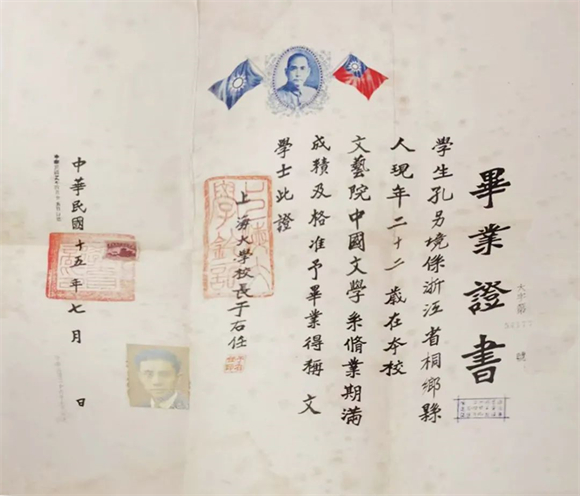 畢業證書
學生孔另境係浙江省桐鄉縣
人現年二十二歲在本校
文藝院中國文學系修業期滿
成績及格准予畢業得稱文
學士此證
上海大學校長于右任
中華民國十五年七月 日
大字第 號